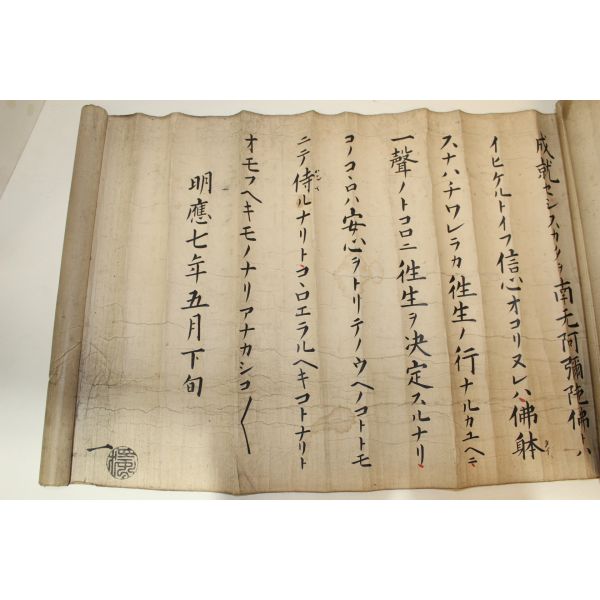 成就セシスカタヲ南无阿彌陀佛トハ
イヒケルトイフ信心オコリヌレハ佛躰
スナハチワレラカ徃生ノ行ナルカユヘニ
一聲ノトコロニ徃生ヲ決定スルナリ
コノコヽロハ安心ヲトリテノウヘノコトトモ
ニテ侍ルナリトコヽロエラルヘキコトナリト
オモフヘキモノナリアナカシコ〱
明應七年五月下旬
一